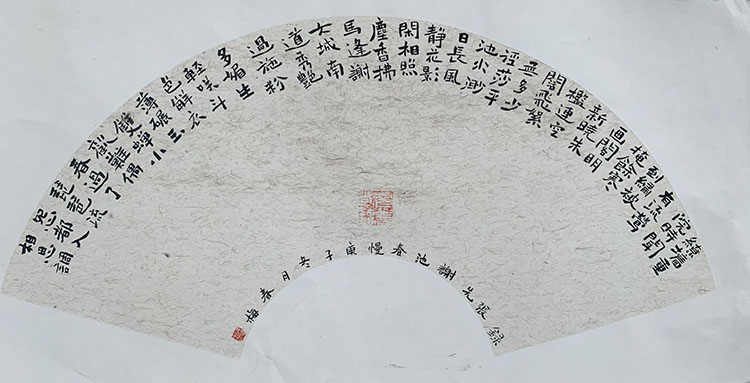 繞墻重
院時聞
有流鶯
到綉被
掩餘寒
画閣明
新曉朱
檻連空
闊飛絮
無多少
徑莎平
池水渺
日長風
静花影
閑相照
塵香拂
馬逢謝
女城南
道秀艷
過施粉
多媚生
輕咲斗
色鮮衣
薄碾玉
雙蟬小
歡難偶
春過了
琵琶流
怨都入
相思調
録張先謝池春慢庚子冬月春梅